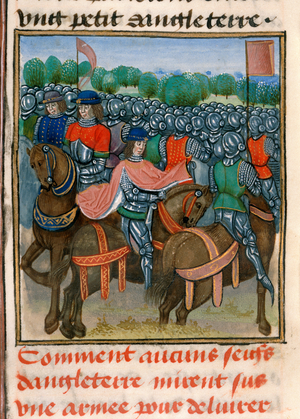 vng petit dangleterre.
Comment aucuns seigrs
dangleterre mirent sus
vne armee pour deliurer